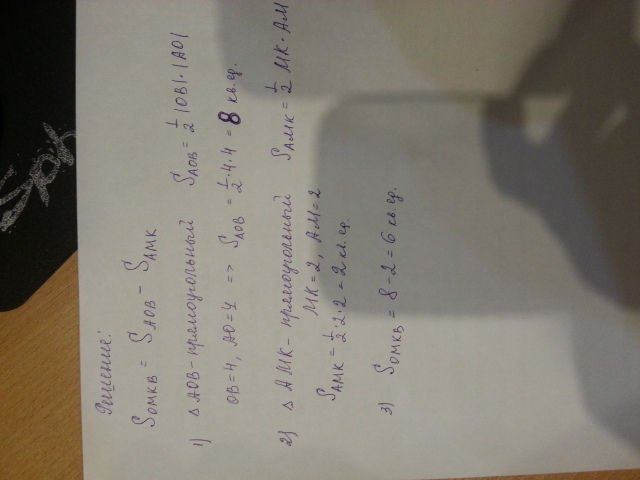 Решение:
S OMKB = S AOB − S AMK
1) △ AOB - прямоугольный S AOB = 1/2 |OB|·|AO|
OB=4, AO=4 => S AOB = 1/2·4·4 = 8 кв.ед.
2) △ AMK - прямоугольный S AMK = 1/2 MK·AM
MK=2, AM=2
S AMK = 1/2·2·2 = 2 кв.ед.
3) S OMKB = 8-2=6 кв.ед.